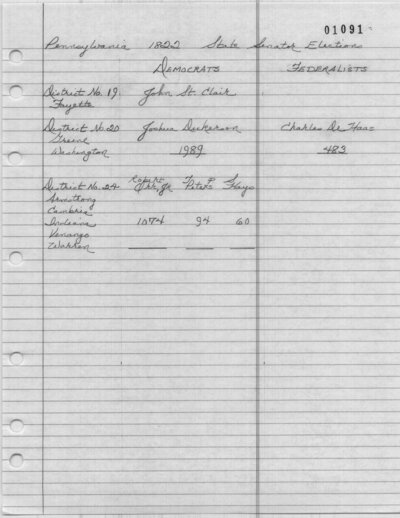 01091
Pennsylvania 1822 State Senator Elections
DEMOCRATS FEDERALISTS
District No. 19 John St. Clair
Fayette
District No. 20 Joshua Dickerson Charles De Haas
Greene
Washington 1989 483
District No. 24 Robert Orr, Jr T. P. Peters S Hays
Armstrong
Cambria
Indiana 1074 94 60
Venango
Warren